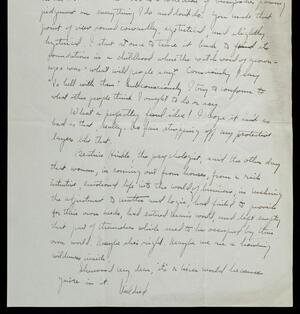 judgment on everything I do and don't do. You made that
point of view sound cowardly, egotistical, and slightly
hysterical. I start at once to trace it back to find its
foundations in a childhood where the watchword of grown-
ups was "what will people say?" Consciously I say
"to hell with them" Subconsciously I long to conform to
what other people think I ought to do or say.
What a perfectly fiendish idea! I hope it isn't as
bad as that, really. No fun stripping off my protective
layers like that.
Beatrice Hinkle, the psychologist, said the other day
that women, in coming out from houses, from a rich
intuitive, emotional life into the world of business, in making
the adjustment to matter and logic, had failed to provide
for their own needs, had entered man's world, and left empty
that part of themselves which used to be occupied by their
own world. Maybe she's right. Maybe we are a howling
wilderness inside.
Sherwood my dear, it's a nicer world because
you're in it.